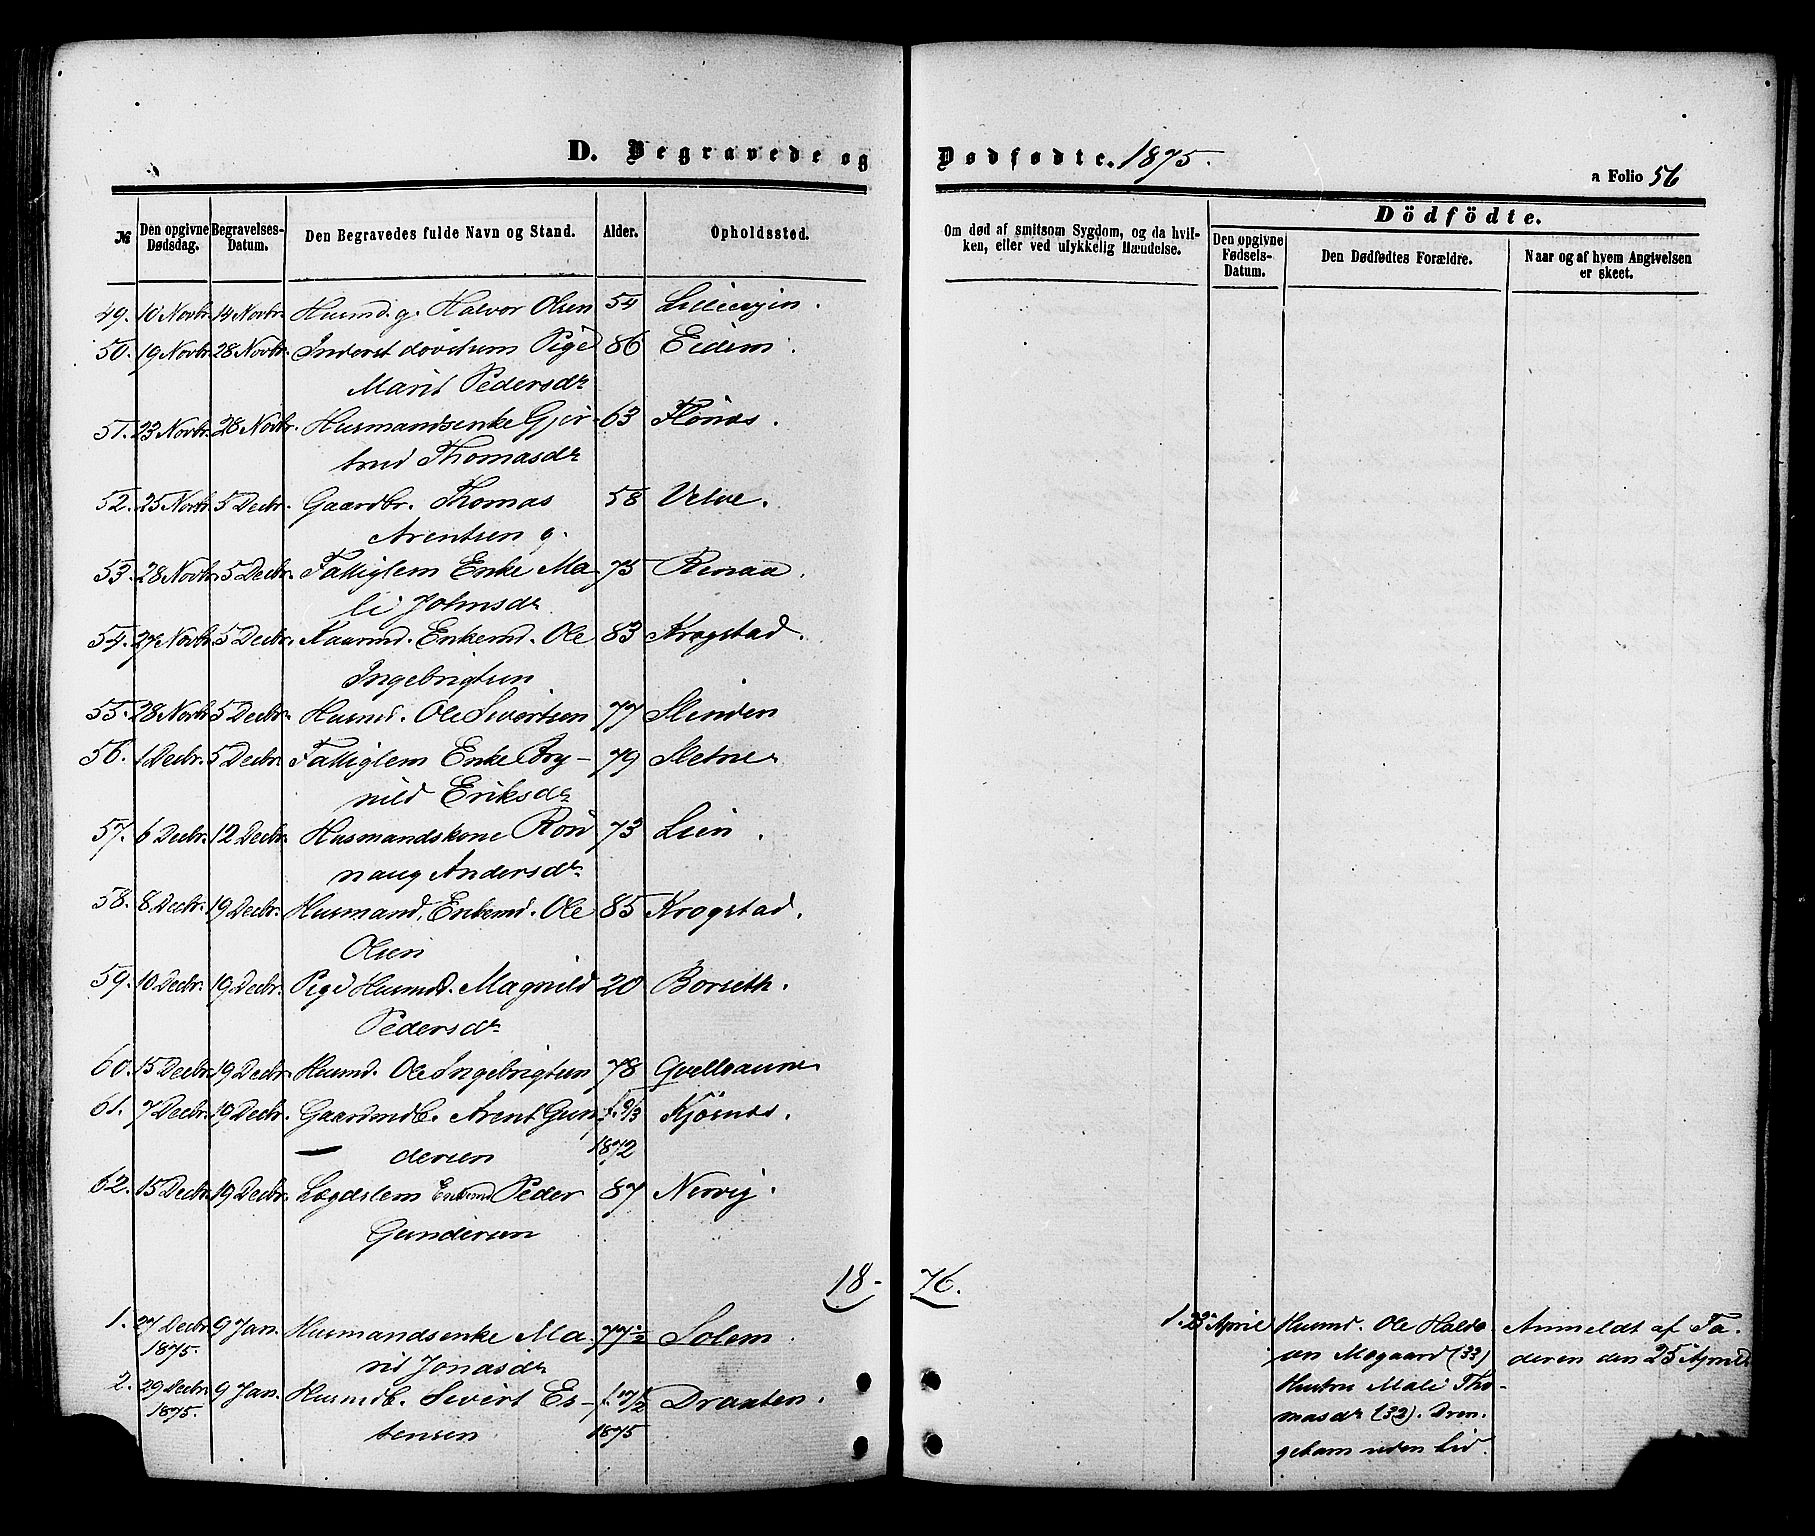 D. Begravede og Dødfødte. 1875.
a Folio 56
№ Den opgivne Dødsdag. Begravelses-Datum. Den Begravedes fulde Navn og Stand. Alder. Opholdssted.
Om død af smitsom Sygdom, og da hvil-
ken, eller ved ulykkelig Hændelse.
Dödfödte.
Den opgivne Fødsels-Datum. Den Dødfødtes Forældre. Naar og af hvem Angivelsen er skeet.
49. 10 Novbr. 14 Novbr. Husmd. g. Halvor Olsen 54
50. 19 Novbr. 28 Novbr. Inderst Pige 86 Eidem.
Marit Pedersdr
51. 23 Novbr. 28 Novbr. Husmandsenke Gjer- 63 Flönæs.
trud Thomasdr
52. 25 Novbr. 5 Decbr. Gaardbr. Thomas 58 Velve.
Arentsen g.
53. 28 Novbr. 5 Decbr. Fattiglem Enke Ma- 75 Renaa.
li Johnsdr
54. 27 Novbr. 5 Decbr. Kaarmd. Enkemd. Ole 83 Krogstad.
Ingebrigtsen
55. 28 Novbr. 5 Decbr. Husmd. Ole Sivertsen 77 Slinden
56. 1 Decbr. 5 Decbr. Fattiglem Enke Bry- 79 Sletne.
nild Eriksdr
57. 6 Decbr. 12 Decbr. Husmandskone Rön- 73 Lien.
naug Andersdr
58. 8 Decbr. 19 Decbr. Husmand, Enkemd. Ole 85 Krogstad.
Olsen
59. 10 Decbr. 19 Decbr. Pige Husmd. Magnild 20 Borseth.
Pedersdr
60. 15 Decbr. 19 Decbr. Husmd. Ole Ingebrigtsen 78 Qvelloaune
61. 7 Decbr. 19 Decbr. Gaardmdb. Arent Gun- f. 9/3 Kjösnæs.
dersen 1872
62. 15 Decbr. 19 Decbr. Lægdslem Enkemd Peder 87 Nervig.
Gundersen
18-76.
1. 27 Decbr 9 Jan. Husmandsenke Ma- 77 1/2 Solem.
1875. rit Jonasdr
2. 29 Decbr 9 Jan. Husmdb. Sivert Es- f. 17/2 Draaten.
1875. tensen 1875
1. 23 April Husmd. Ole Hald- Anmeldt af Fa-
Mogaard (33) deren den 25 April
Hustru Mali Tho-
masdr (32). Dren-
gebarn uden Liv.